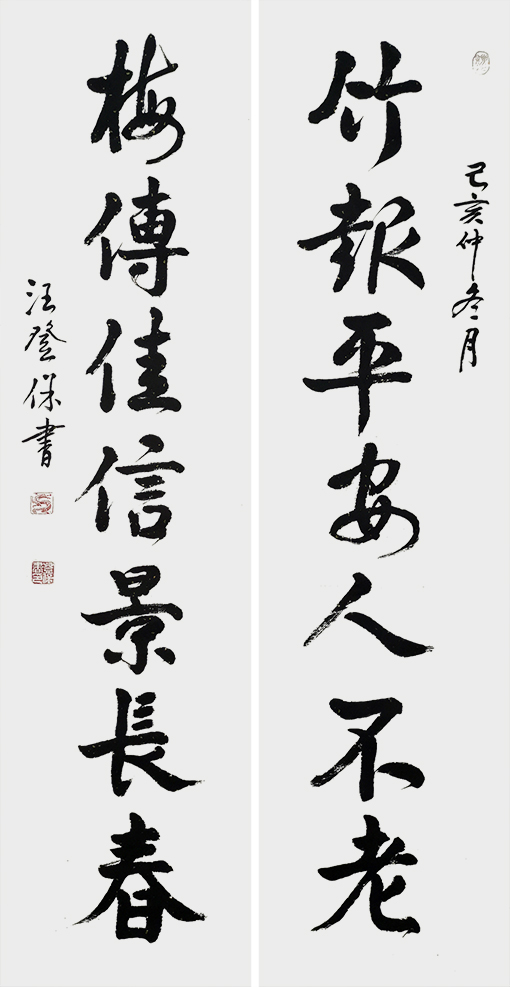 己亥仲冬月
竹報平安人不老
梅傳佳信景長春
汪登保書